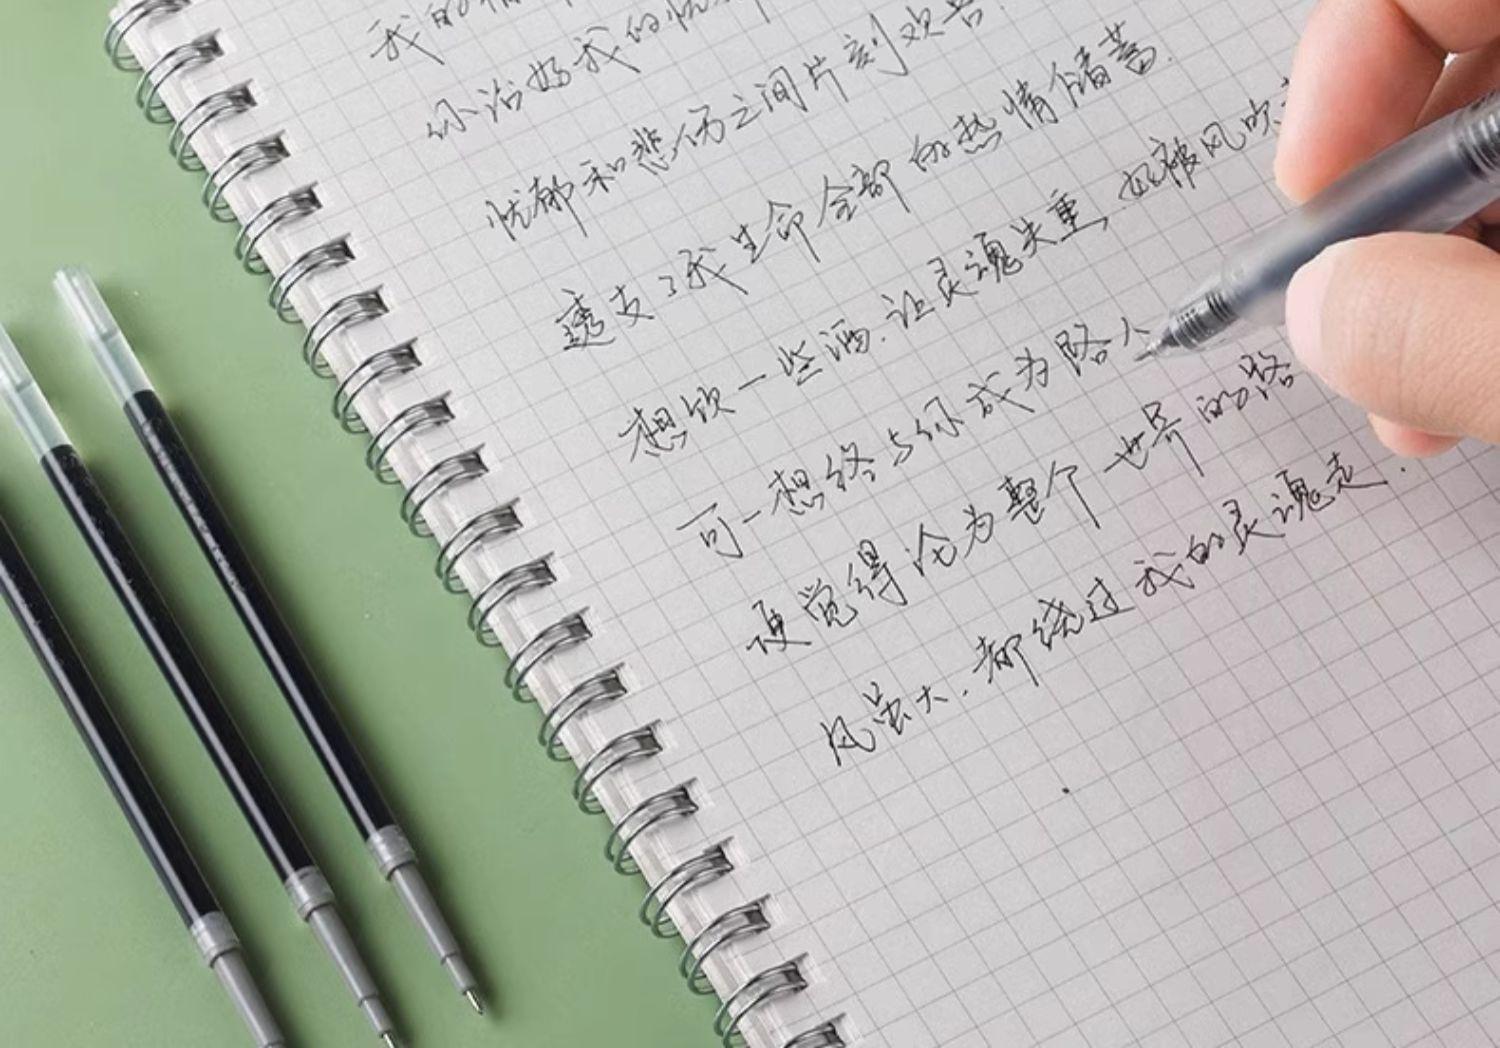 我的情
你治好我的忧郁
忧郁和悲伤之间片刻欢
透支了我生命全部的热情储蓄.
想饮一些酒.让灵魂失重,好被风吹
可一想终与你成为路人
便觉得沦为整个世界的路
风虽大.都绕过我的灵魂走.